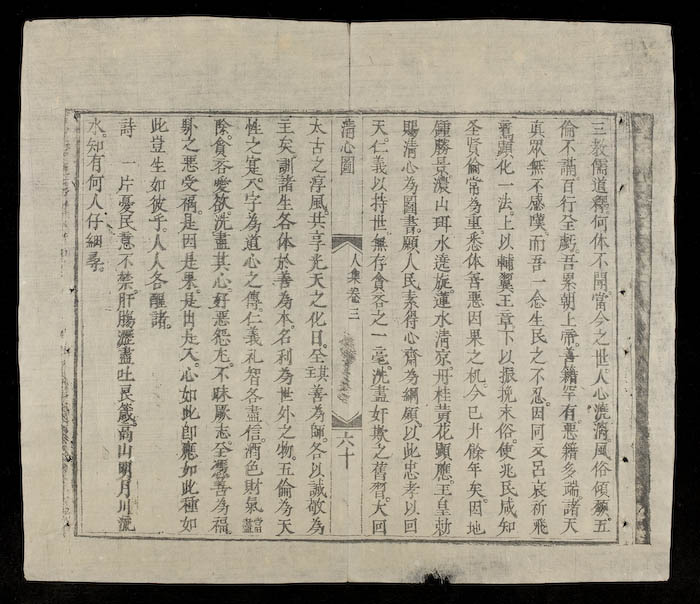 三教儒道釋何休不開當今之世人心澆漓風俗傾頹五
倫不滿百行全虧吾累朝上帝善籍罕有惡籍多端諸天
真眾無不感嘆而吾一念生民之不忍因同文呂哀祈飛
鸞顯化一法上以輔翼王章下以振挽末俗使兆民咸知
圣贤倫常為重悉体善惡因果之机今已廾餘年矣因地
鍾勝景濃山珥水遶旋蓮水清京丹桂黃花顯應玉皇勅
賜清心為圖書願人民素得心齋為綱領以此忠孝以回
天仁義以持世無存貪吝之一毫洗盡奸欺之舊習大回
清心圖 人集卷三 六十
太古之淳風共享光天之化日全其善為師各以誠敬為
主矣訓諸生各体於善為本名利為世外之物五倫為天
性之寔八字為道心之傳仁義礼智各盡信酒色財氣當
除貪吝愛欲洗盡其心好惡怨尤不昧厥志全憑善為福
之惡受禍是因是果是出是入心如此即應如此種如
此豈生如彼乎人人各醒諸
詩 一片憂民意不禁肝膓瀝盡吐良箴高山明月川流
水知有何人仔細尋